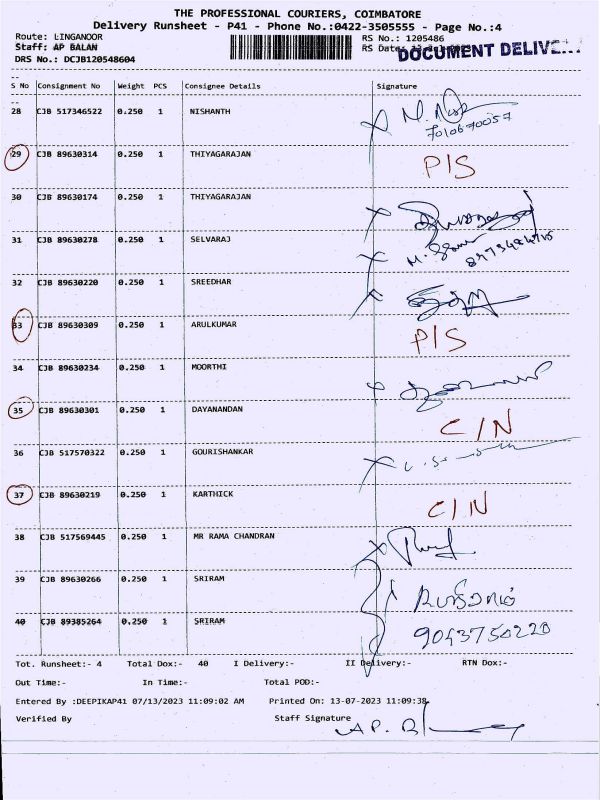 THE PROFESSIONAL COURIERS, COIMBATORE
Delivery Runsheet - P41 - Phone No.:0422-3505555 - Page No.:4
Route: LINGANOOR RS No.: 1205486
Staff: AP BALAN RS Date:
DRS No.: DCJB120548604 DOCUMENT
S No Consignment No Weight PCS Consignee Details Signature
28 CJB 517346522 0.250 1 NISHANTH
7010670057
29 CJB 89630314 0.250 1 THIYAGARAJAN P/S
30 CJB 89630174 0.250 1 THIYAGARAJAN
31 CJB 89630278 0.250 1 SELVARAJ
32 CJB 89630220 0.250 1 SREEDHAR
33 CJB 89630309 0.250 1 ARULKUMAR P/S
34 CJB 89630234 0.250 1 MOORTHI
35 CJB 89630301 0.250 1 DAYANANDAN C/N
36 CJB 517570322 0.250 1 GOURISHANKAR
37 CJB 89630219 0.250 1 KARTHICK C/N
38 CJB 517569445 0.250 1 MR RAMA CHANDRAN
39 CJB 89630266 0.250 1 SRIRAM
40 CJB 89385264 0.250 1 SRIRAM 9043750220
Tot. Runsheet:- 4 Total Dox:- 40 I Delivery:- II Delivery:- RTN Dox:-
Out Time:- In Time:- Total POD:-
Entered By :DEEPIKAP41 07/13/2023 11:09:02 AM Printed On: 13-07-2023 11:09:38
Verified By Staff Signature